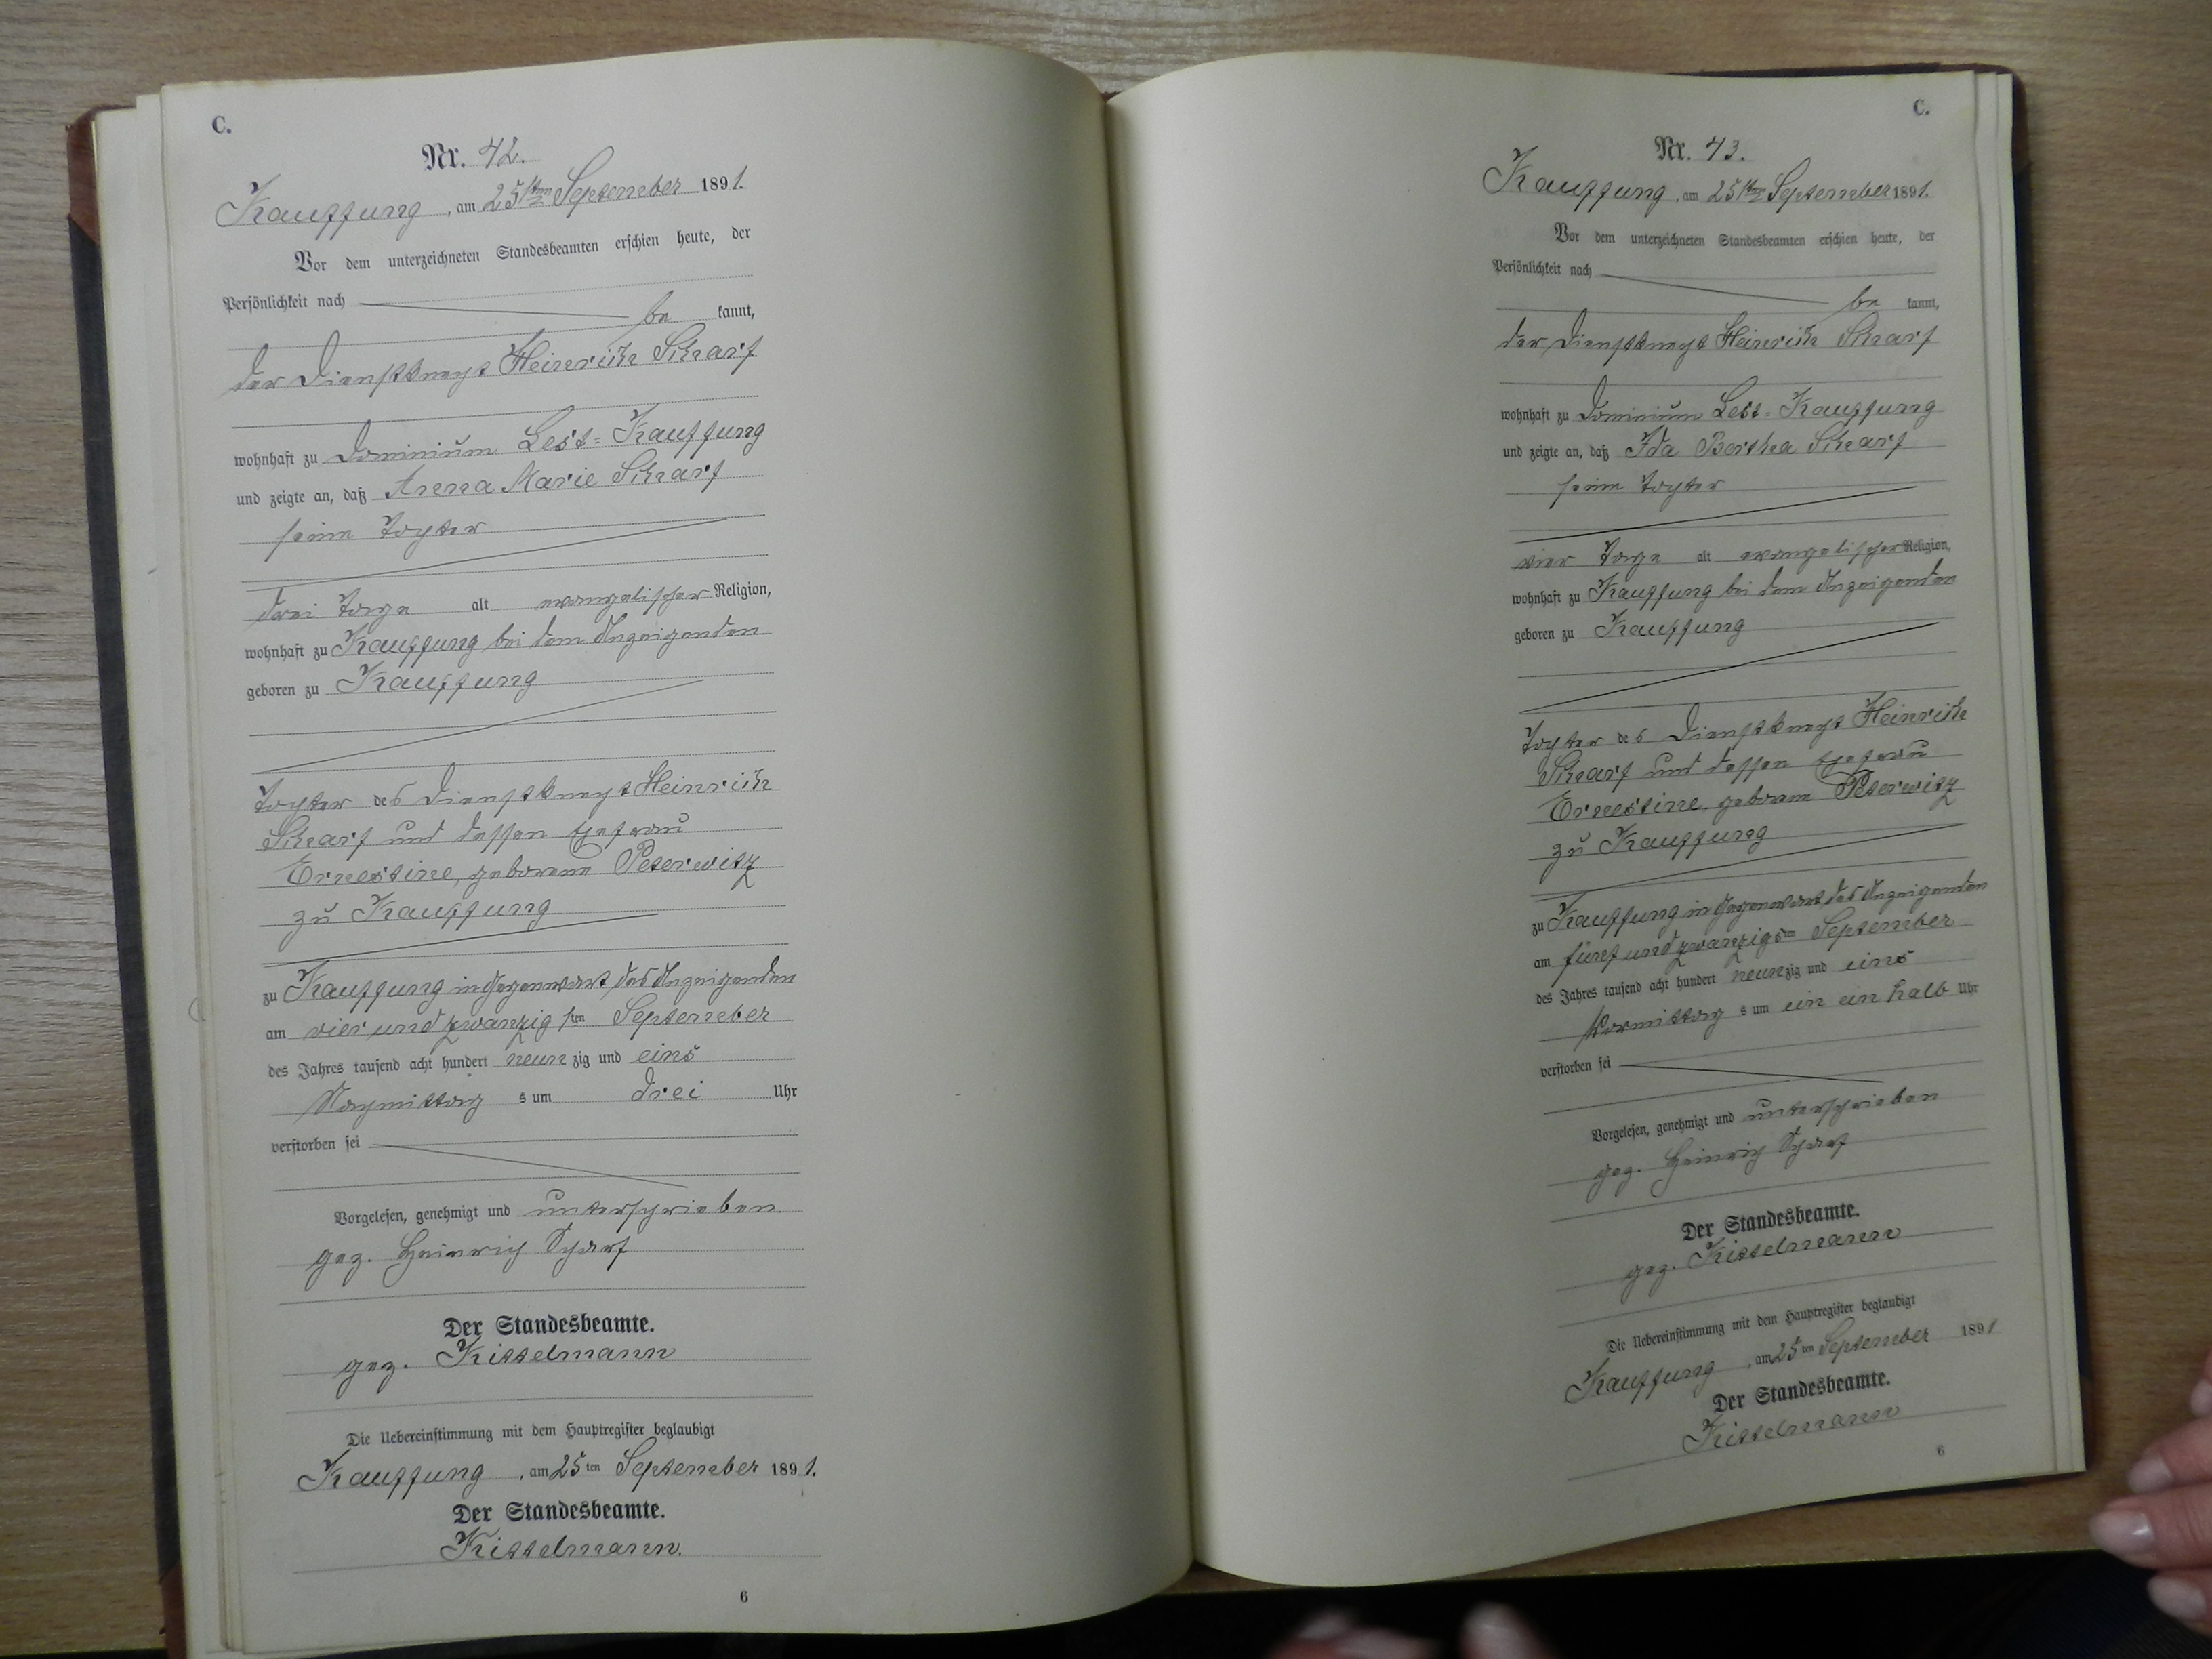 C.
Nr. 42.
Kauffung, am 25sten September 1891.
Vor dem unterzeichneten Standesbeamten erschien heute, der
Persönlichkeit nach
be kannt,
der Dienstknecht Heinrich Scharf
wohnhaft zu Dominium Lest-Kauffung
und zeigte an, daß Anna Marie Scharf
seine Tochter
drei Tage alt evangelischer Religion,
wohnhaft zu Kauffung bei dem Anzeigenden
geboren zu Kauffung
Tochter des Dienstknecht Heinrich
Scharf und dessen Ehefrau
Ernestine, geborene Peterwitz
zu Kauffung
zu Kauffung in Gegenwart des Anzeigenden
am vier und zwanzigsten September
des Jahres tausend acht hundert neunzig und eins
Nachmittags um drei Uhr
verstorben sei
Vorgelesen, genehmigt und unterschrieben
gez. Heinrich Scharf
Der Standesbeamte.
gez. Kisselmann
Die Uebereinstimmung mit dem Hauptregister beglaubigt
Kauffung, am 25ten September 1891.
Der Standesbeamte.
Kisselmann.
6
C.
Nr. 43.
Kauffung, am 25sten September 1891.
Vor dem unterzeichneten Standesbeamten erschien heute, der
Persönlichkeit nach
be kannt,
der Dienstknecht Heinrich Scharf
wohnhaft zu Dominium Lest-Kauffung
und zeigte an, daß Ida Bertha Scharf
seine Tochter
vier Tage alt evangelischer Religion,
wohnhaft zu Kauffung bei dem Anzeigenden
geboren zu Kauffung
Tochter des Dienstknecht Heinrich
Scharf und dessen Ehefrau
Ernestine, geborene Peterwitz
zu Kauffung
zu Kauffung in Gegenwart des Anzeigenden
am fünf und zwanzigsten September
des Jahres tausend acht hundert neunzig und eins
Vormittags um ein ein halb Uhr
verstorben sei
Vorgelesen, genehmigt und unterschrieben
gez. Heinrich Scharf
Der Standesbeamte.
gez. Kisselmann
Die Uebereinstimmung mit dem Hauptregister beglaubigt
Kauffung, am 25ten September 1891
Der Standesbeamte.
Kisselmann
6